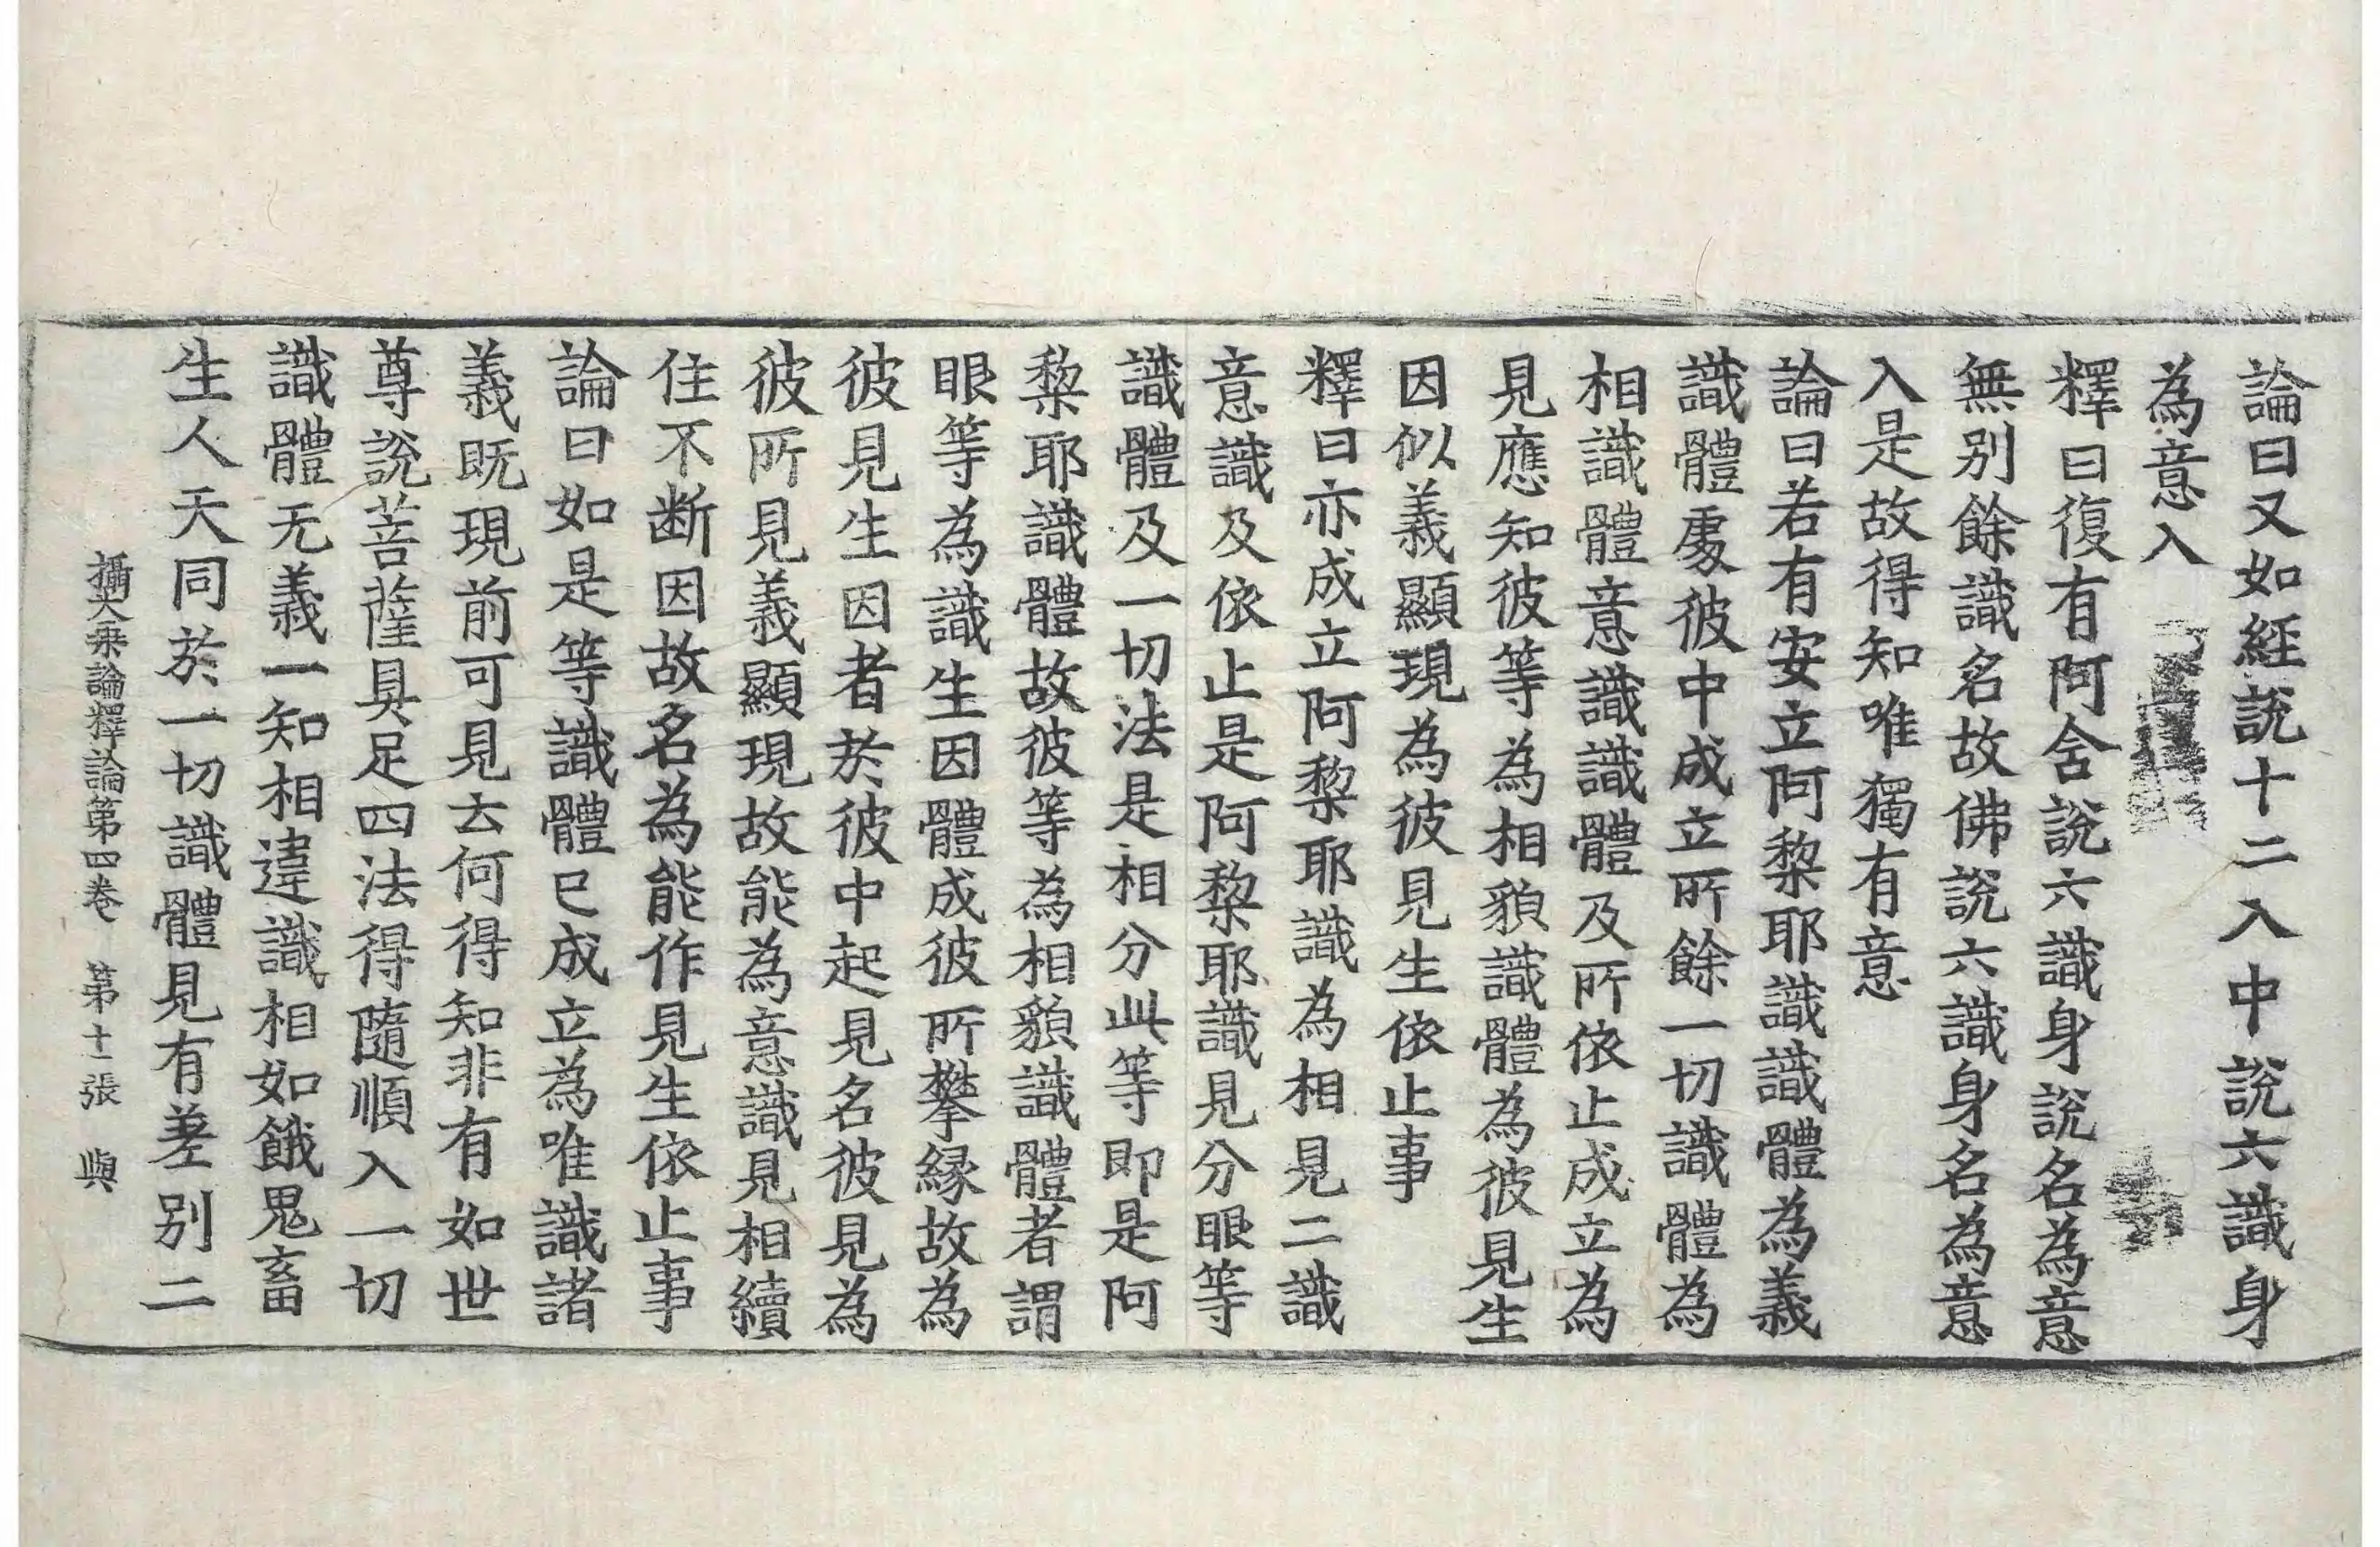 論曰又如經說十二入中說六識身
為意入
釋曰復有阿含說六識身說名為意
無別餘識名故佛說六識身名為意
入是故得知唯獨有意
論曰若有安立阿黎耶識識體為義
識體處彼中成立所餘一切識體為
相識體意識識體及所依止成立為
見應知彼等為相貌識體為彼見生
因似義顯現為彼見生依止事
釋曰亦成立阿黎耶識為相見二識
意識及依止是阿黎耶識見分眼等
識體及一切法是相分此等即是阿
黎耶識體故彼等為相貌識體者謂
眼等為識生因體成彼所攀縁故為
彼見生因者於彼中起見名彼見為
彼所見義顯現故能為意識見相續
住不断因故名為能作見生依止事
論曰如是等識體已成立為唯識諸
義既現前可見云何得知非有如世
尊說菩薩具足四法得隨順入一切
識體无義一知相違識相如餓鬼畜
生人天同於一切識體見有差別二
攝大乗論釋論第四卷 第十一張 與